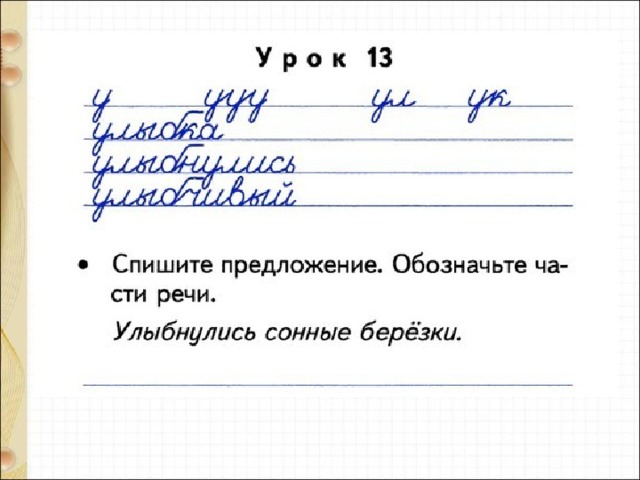 Урок 13
у ууу ул ук
улыбка
улыбнулись
улыбчивый
• Спишите предложение. Обозначьте ча-
сти речи.
Улыбнулись сонные берёзки.